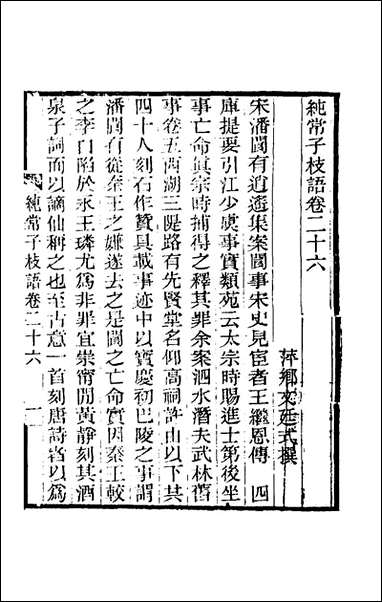 純常子枝語卷二十六
萍鄉文廷式撰
宋潘閬有逍遙集案閬事宋史見宦者王繼恩傳 四
庫提要引江少虞事實類苑云太宗時賜進士第後坐
事亡命眞宗時捕得之釋其罪余案泗水潛夫武林舊
事卷五西湖三隄路有先賢堂名仰高祠許由以下共
四十人刻石作贊具載事迹中以寶慶初巴陵之事謂
潘閬有從秦王之嫌遂去之是閬之亡命實因秦王較
之李白陷於永王璘尤爲非罪宜崇甯閒黃靜刻其酒
泉子詞而以謫仙稱之也至古意一首刻唐詩者以爲
純常子枝語卷二十六 一